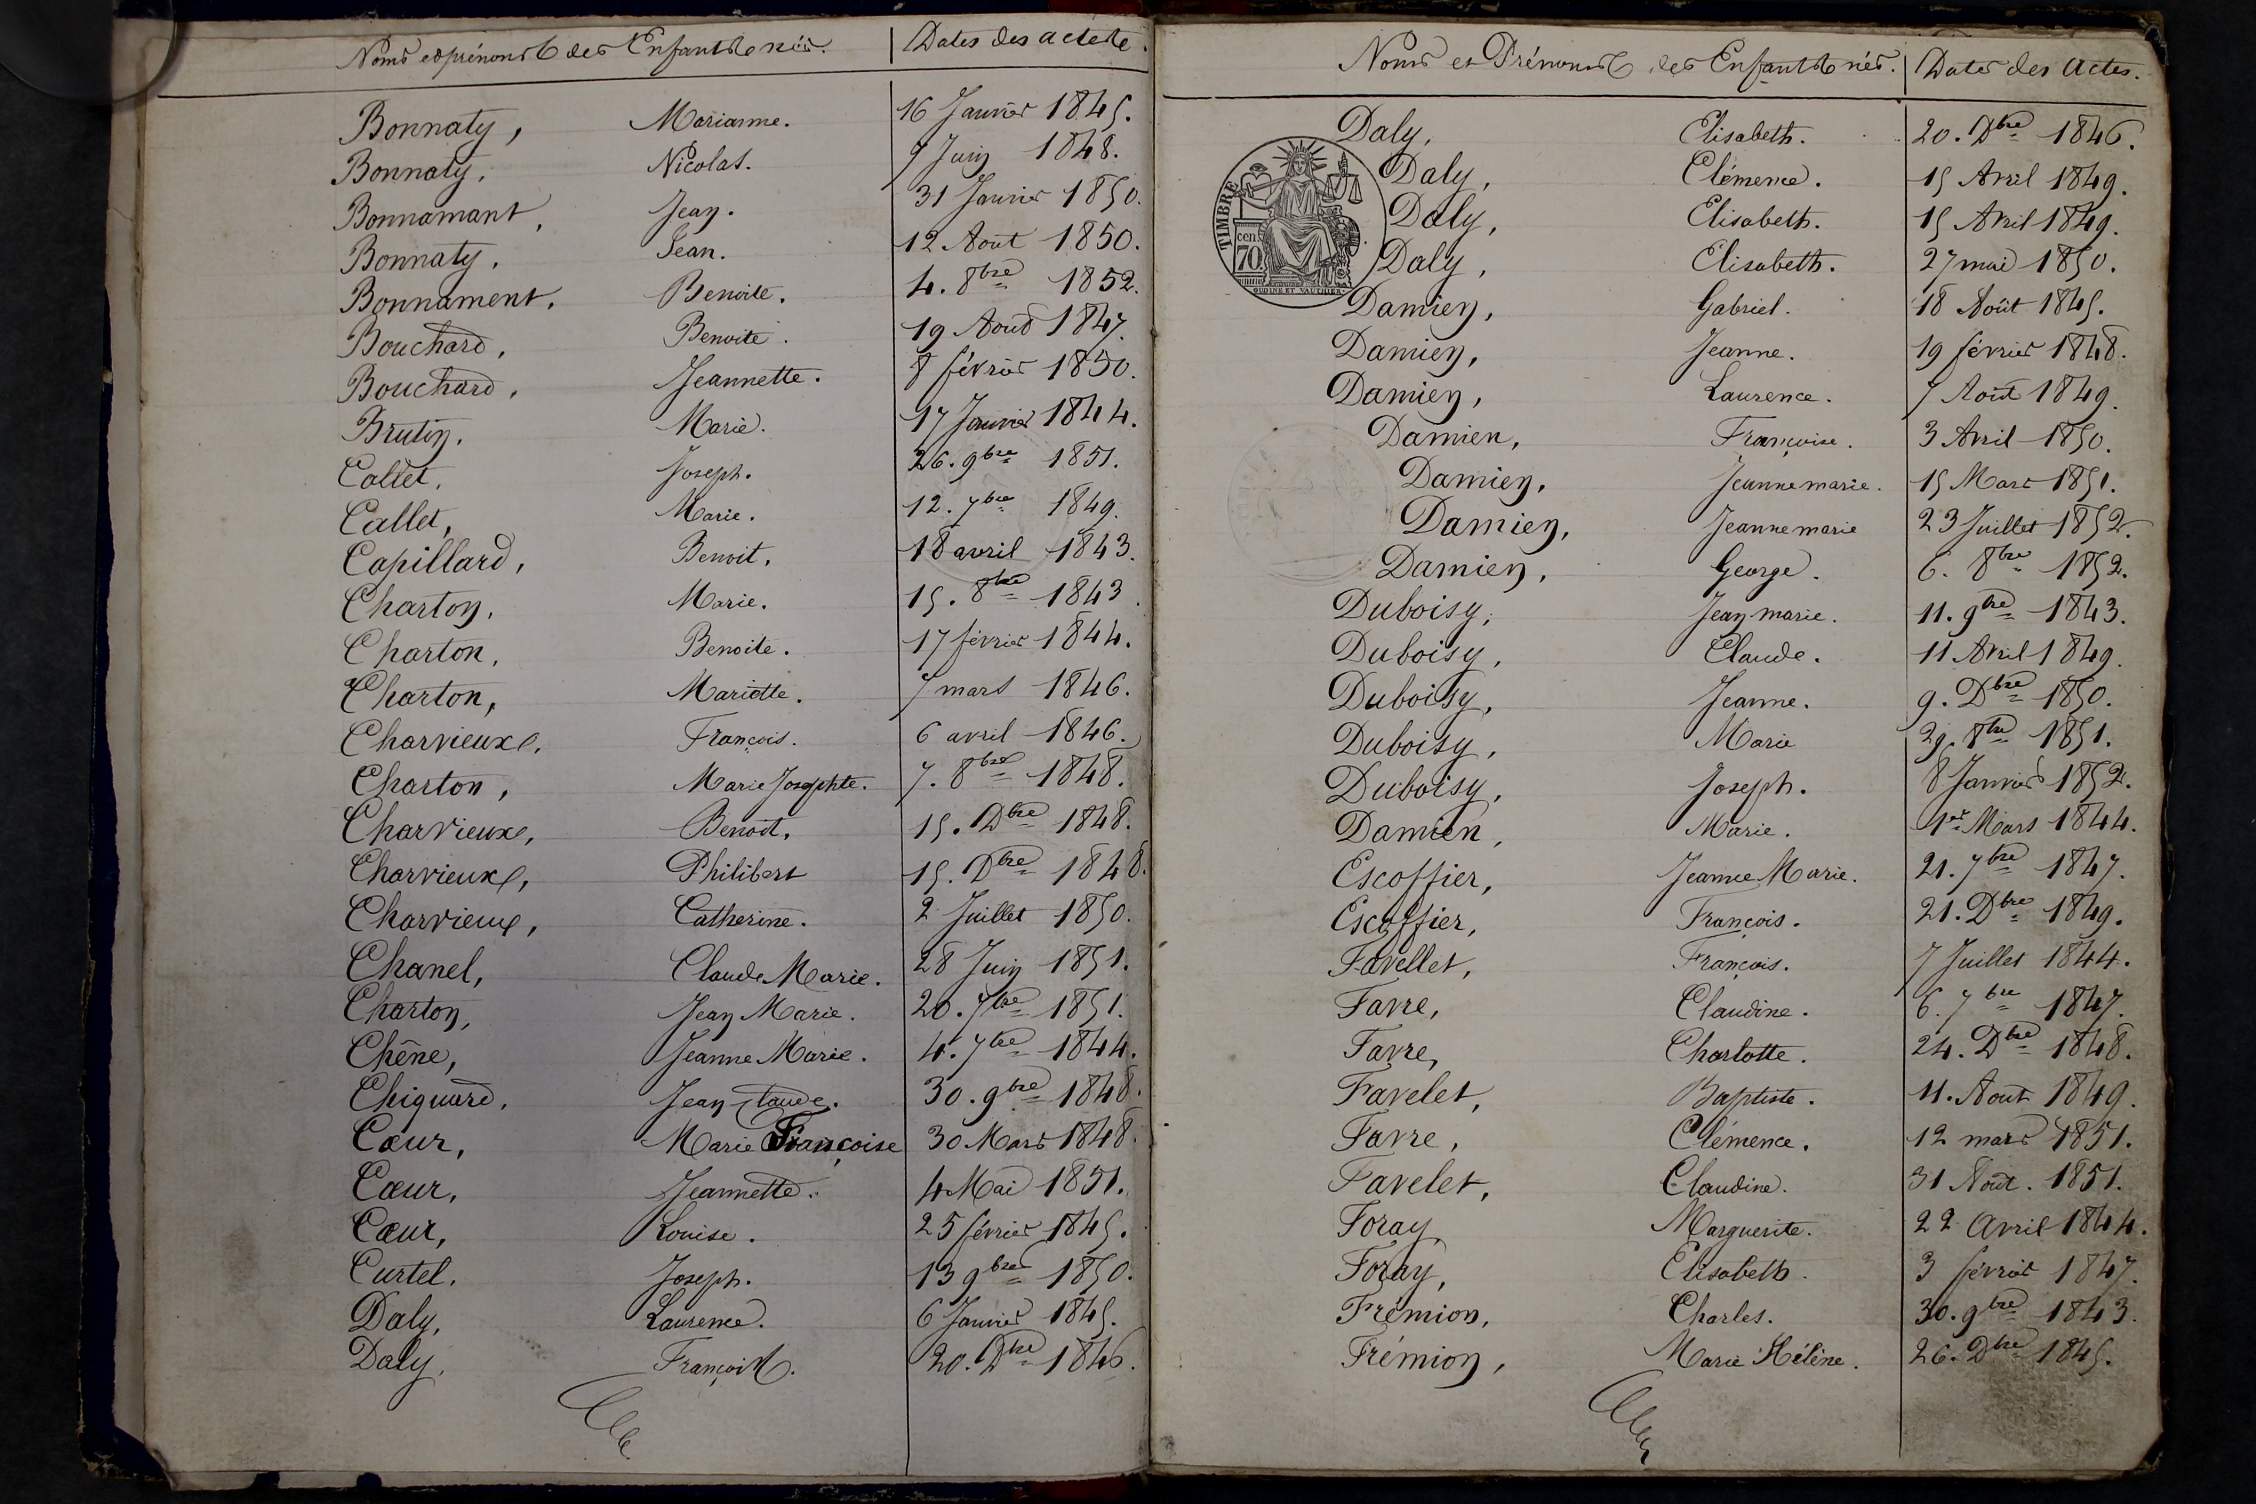 Noms et prénoms des Enfants nés. Dates des actes.
Bonnaty, Marianne. 16 Janvier 1845.
Bonnaty, Nicolas. 9 Juin 1848.
Bonnamant, Jean. 31 Janvier 1850.
Bonnaty, Jean. 12 Août 1850.
Bonnament, Benoite. 4. 8bre 1852.
Bouchard, Benoite. 19 Août 1847.
Bouchard, Jeannette. 8 février 1850.
Brutin, Marie. 17 Janvier 1844.
Callet, Joseph. 26. 9bre 1851.
Callet, Marie. 12. 7bre 1849.
Capillard, Benoit. 18 avril 1843.
Charton, Marie. 15. 8bre 1843.
Charton, Benoite. 17 février 1844.
Charton, Mariette. 7 mars 1846.
Charvieux, François. 6 avril 1846.
Charton, Marie Josephte. 7. 8bre 1848.
Charvieux, Benoit. 15. Dbre 1848.
Charvieux, Philibert 15. Dbre 1848.
Charvieux, Catherine. 2 Juillet 1850.
Chanel, Claude Marie. 28 Juin 1851.
Charton, Jean Marie. 20. 7bre 1851.
Chêne, Jeanne Marie. 4. 7bre 1844.
Chiquard, Jean Claude. 30. 9bre 1848.
Cœur, Marie Françoise 30 Mars 1848.
Cœur, Jeannette. 4 Mai 1851.
Cœur, Louise. 25 février 1845.
Curtel, Joseph. 13 9bre 1850.
Daly, Laurence. 6 Janvier 1845.
Daly, François. 20. Dbre 1846.
Noms et Prénoms des Enfants nés. Dates des Actes.
Daly, Elisabeth. 20. Dbre 1846.
Daly, Clémence. 15 Avril 1849.
Daly, Elisabeth. 15 Avril 1849.
Daly, Elisabeth. 27 mai 1850.
TIMBRE
cen.
70
OUDINE ET VAUTHIER
Damien, Gabriel. 18 Août 1845.
Damien, Jeanne. 19 février 1848.
Damien, Laurence. 7 Août 1849.
Damien, Françoise. 3 Avril 1850.
Damien, Jeanne marie. 15 Mars 1851.
Damien, Jeanne marie 23 Juillet 1852.
Damien, George. 6. 8bre 1852.
Duboisy, Jean marie. 11. 9bre 1843.
Duboisy, Claude. 11 Avril 1849.
Duboisy, Jeanne. 9. Dbre 1850.
Duboisy, Marie 29. 8bre 1851.
Duboisy, Joseph. 8 Janvier 1852.
Damien, Marie. 1er Mars 1844.
Escoffier, Jeanne Marie. 21. 7bre 1847.
Escoffier, François. 21. Dbre 1849.
Favellet, François. 7 Juillet 1844.
Favre, Claudine. 6. 7bre 1847.
Favre, Charlotte. 24. Dbre 1848.
Favelet, Baptiste. 11. Aout 1849.
Favre, Clémence. 12 mars 1851.
Favelet, Claudine. 31 Août. 1851.
Foray, Marguerite. 22 Avril 1844.
Foray, Elisabeth. 3 février 1847.
Frémion, Charles. 30. 9bre 1843.
Frémion, Marie Hélène. 26. Dbre 1845.